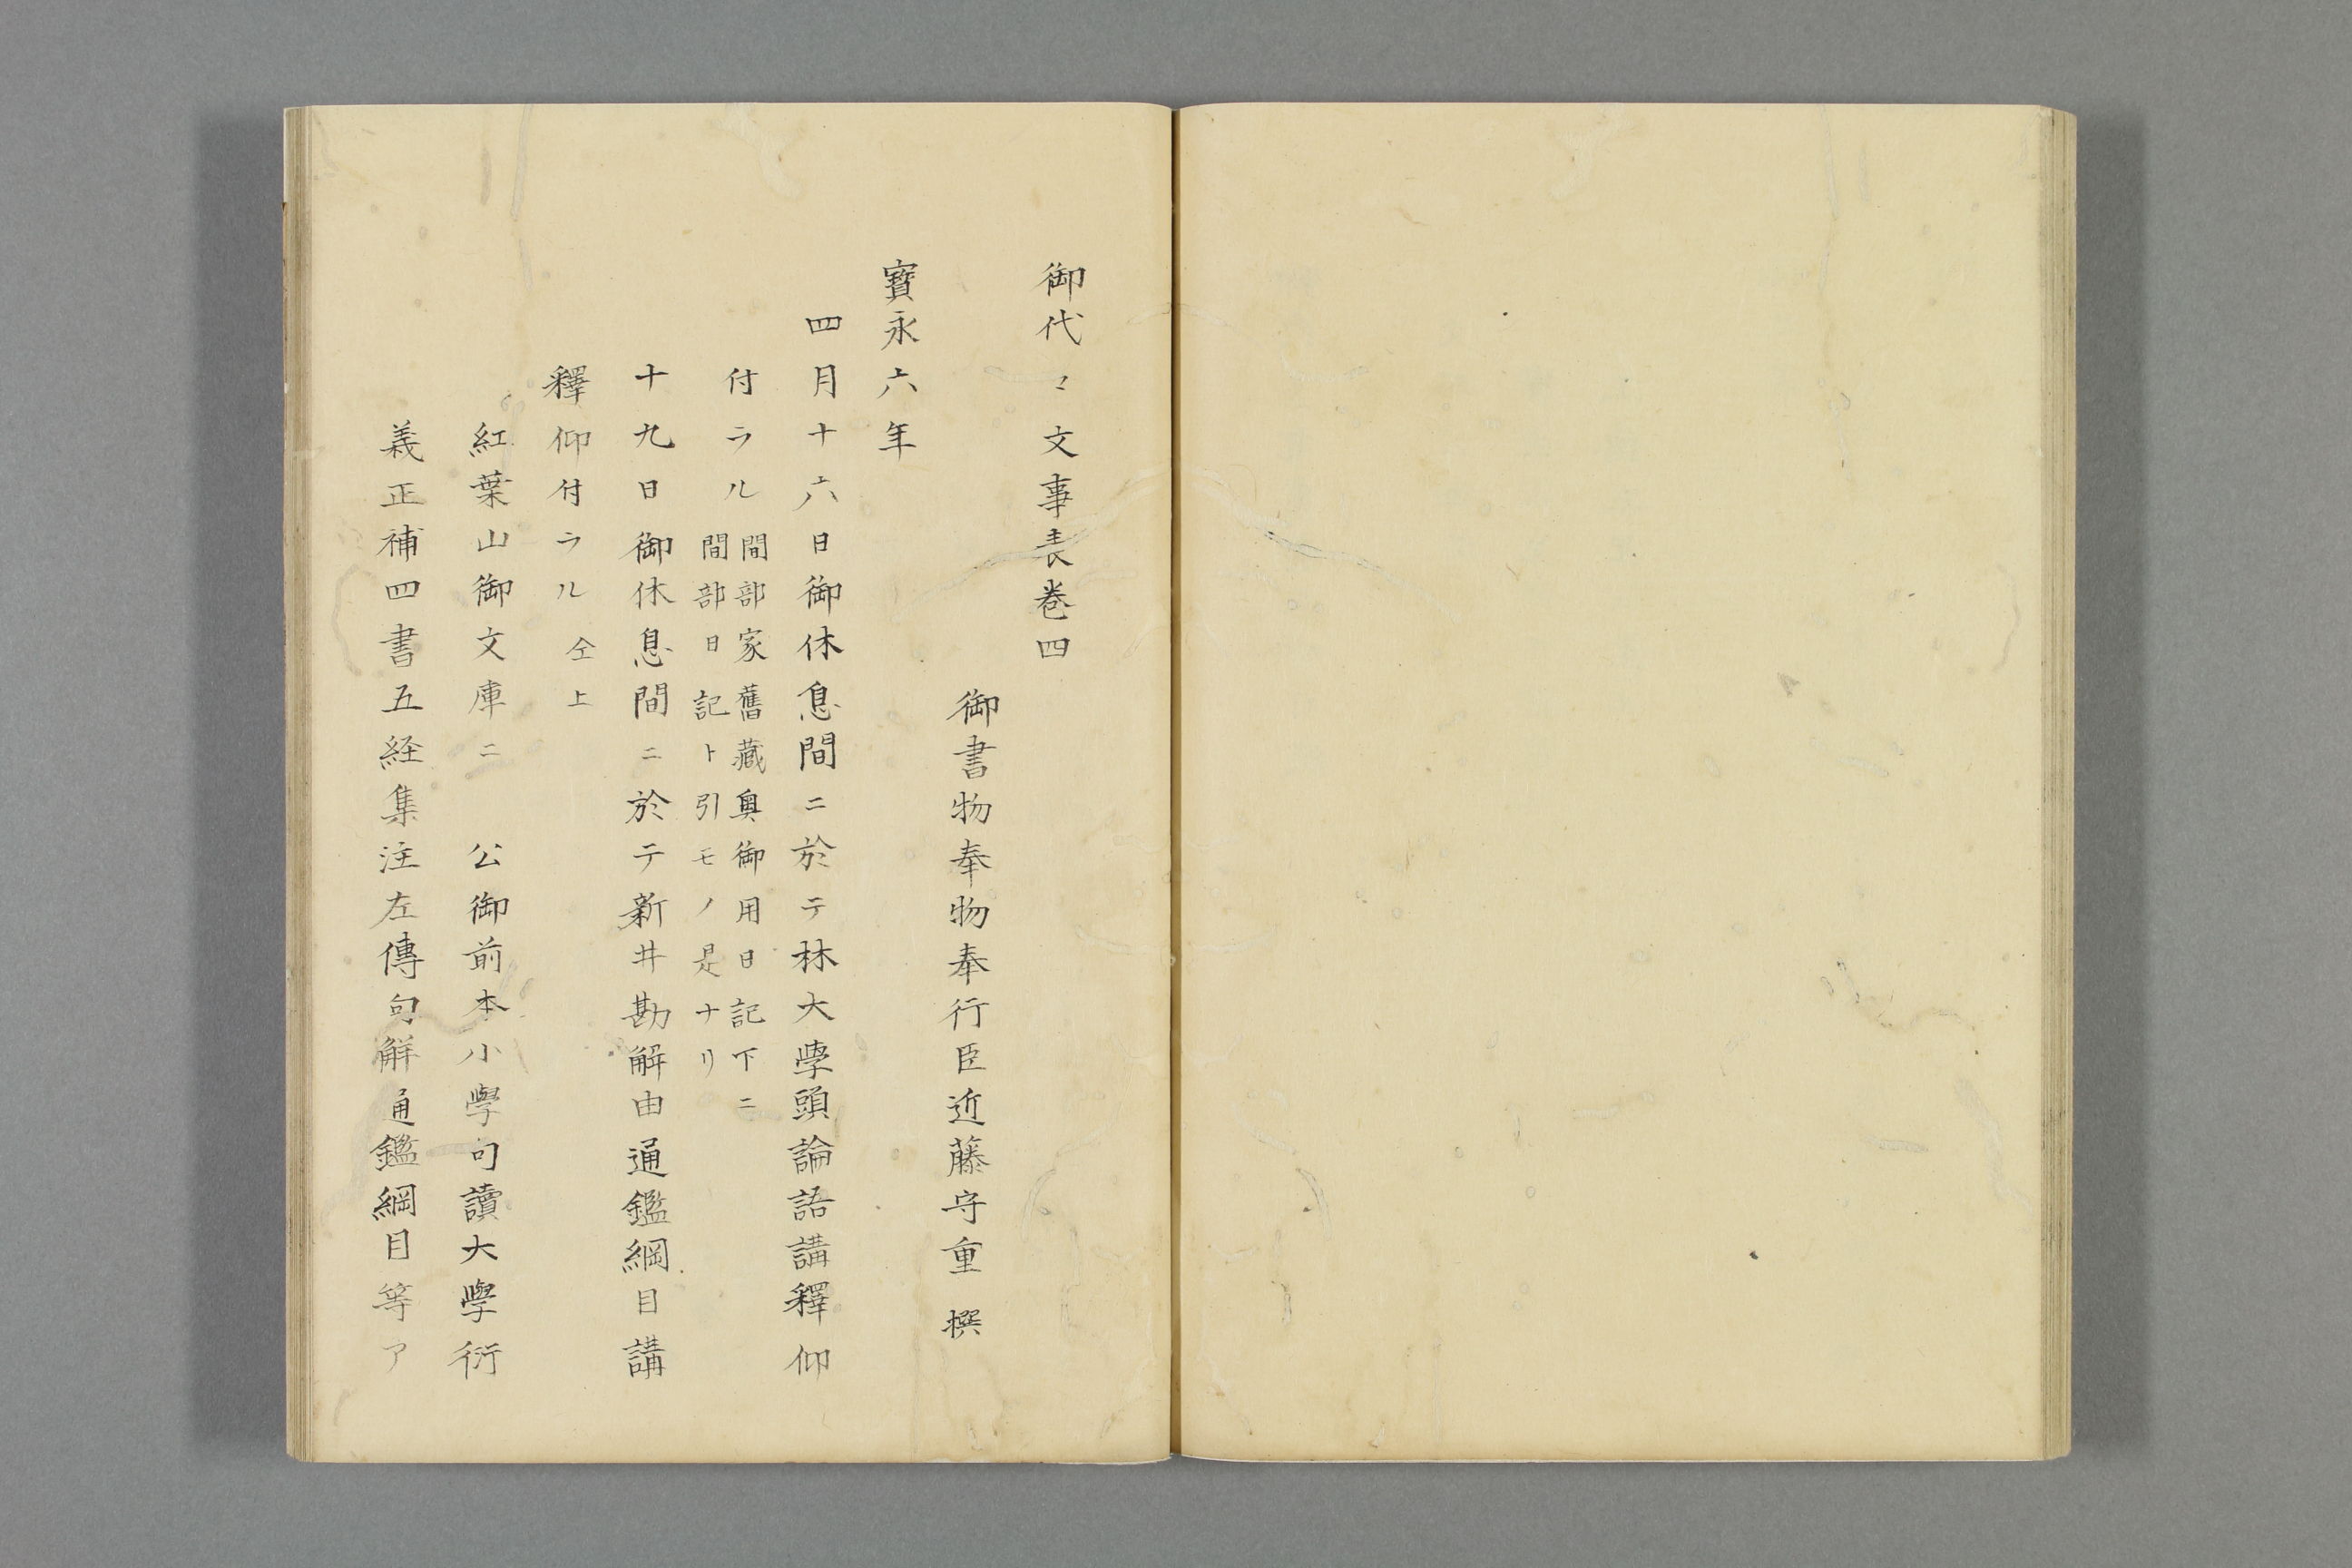 御代〻文事表巻四
御書物奉物奉行臣近藤守重 撰
寳永六年
四月十六日御休息間ニ於テ林大學頭論語講釋仰
付ラル
間部家舊藏奥御用日記下ニ
間部日記ト引モノ是ナリ
十九日御休息間ニ於テ新井勘解由通鑑綱目講
釋仰付ラル 仝上
紅葉山御文庫ニ 公御前本小學句讀大學衍
義正補四書五経集注左傳句解通鑑綱目等ア